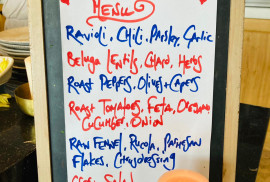 MENU
RAVIOLI, CHILI, PARSLEY, GARLIC
BELUGA LENTILS, CHARD, HERBS
ROAST PEPPERS, OLIVES + CAPERS
ROAST TOMATOES, FETA, OREGANO
CUCUMBER, ONION
RAW FENNEL, RUCOLA, PARMESAN
FLAKES,
SALAD